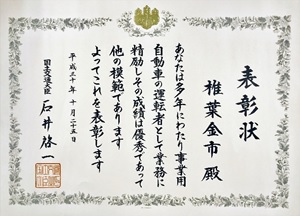 表彰状
椎葉金市 殿
あなたは多年にわたり事業用
自動車の運転者として業務に
精励しその成績は優秀であって
他の模範であります
よってこれを表彰します
平成三十年 十月二十五日
国土交通大臣
石井啓一